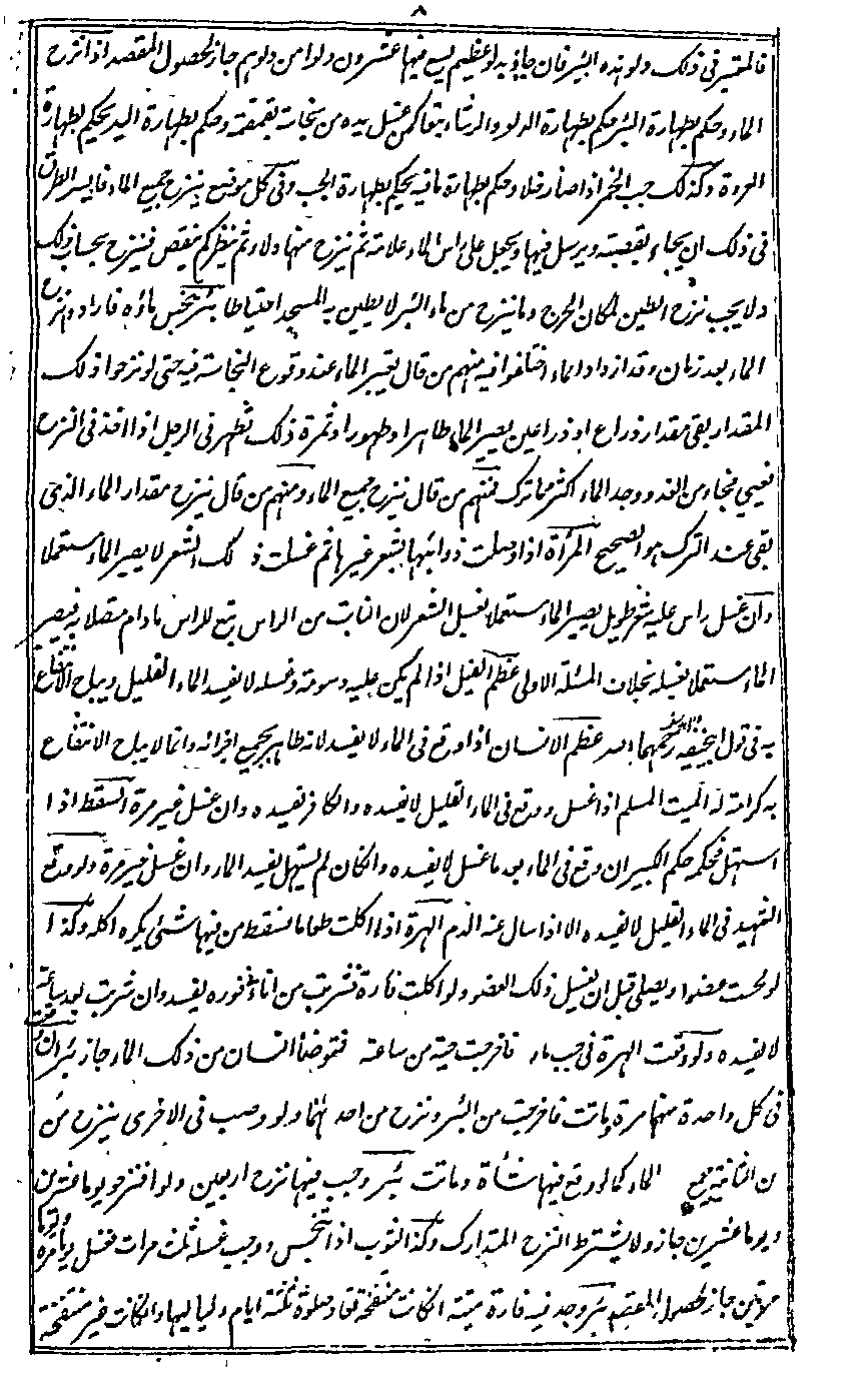 ٨
فالمعتبر فى ذلك ولو نزح البئر فان جاؤ بدلو عظيم يسع فيها عشرون دلوا من دلوهم جاز لحصول المقصد اذا نزح
الماء وحكم بطهارة البئر حكم بطهارة الدلو والرشاء تبعا كمن غسل يده من نجاسة بقمقمة وحكم بطهارة اليد يحكم بطهارة
العروة وكذلك حب الخمر اذا صار خلا وحكم بطهارة ما فيه يحكم بطهارة الحب وفى كل موضع ينزح جميع الماء فايسر الطرق
فى ذلك ان يجاء بقصبة ويرسل فيها ويجعل على راس الماء علامة ثم ينزح منها دلاء ثم ينظر كم ينقص فينزح بحساب ذلك
ولا يجب نزح الطين لمكان الحرج وما ينزح من ماء البئر لا يطين به المسجد احتياطا بئر تنجس ماؤه فارادوا نزح
الماء بعد زمان وقد ازداد الماء اختلفوا فيه منهم من قال يعتبر الماء عند وقوع النجاسة فيه حتى لو نزحوا ذلك
المقدار بقى مقدار ذراع او ذراعين يصير الماء طاهرا وطهورا وثمرة ذلك تظهر فى الرجل اذا اخذ فى النزح
فعيي فجاء من الغد ووجد الماء اكثر مما ترك فمنهم من قال ينزح جميع الماء ومنهم من قال ينزح مقدار الماء الذى
بقى عند الترك هو الصحيح المرأة اذا وصلت ذوائبها بشعر غيرها ثم غسلت ذلك الشعر لا يصير الماء مستعملا
وان غسل راس عليه شعر طويل يصير الماء مستعملا بغسل الشعر لان النابت من الراس يتبع للراس مادام متصلا به فيصير
الماء مستعملا بغسله بخلاف المسئلة الاولى عظم الفيل اذا لم يكن عليه دسومة وغسله لا يفسد الماء القليل ويباح الانتفاع
به فى قول ابيحنيفة وابى يوسف رحمهما الله عظم الانسان اذا وقع فى الماء لا يفسد لانه طاهر بجميع اجزائه وانما لا يباح الانتفاع
به كرامة له الميت المسلم اذا غسل ووقع فى الماء القليل لا يفسده والكافر يفسده وان غسل غير مرة السقط اذا
استهل فحكمه حكم الكبير ان وقع فى الماء بعد ما غسل لا يفسده وان كان لم يستهل يفسد الماء وان غسل غير مرة ولو وقع
الشهيد فى الماء القليل لا يفسده الا اذا سال عنه الدم الهرة اذا اكلت طعاما فسقط من فيها شئ يكره اكله وكذا
لو لحست عضوا ويصلى قبل ان يغسل ذلك العضو ولو اكلت فارة فشربت من اناء فوره يفسد وان شربت بعد ساعة
لا يفسده ولو وقعت الهرة فى حب ماء فاخرجت حية من ساعته فتوضأ انسان من ذلك الماء جاز بئران وقعت
فى كل واحدة منهما مرة وماتت فاخرجت من البئر ونزح من احدهما ولو وصب فى الاخرى ينزح من
ن الثانية جميع الماء كما لو وقع فيها شأة وماتت بئر وجب فيها نزح اربعين دلوا فنزحو يوما عشرين
ويوما عشرين جاز ولا يشترط النزح المتدارك وكذا الثوب اذا تنجس ووجب غسله ثلث مرات فغسل يوما مرة ويوما
مرتين جاز لحصول المقصد بئر وجد فيه فارة ميتة ان كانت منتفخة تعاد صلوة ثلثة ايام ولياليها وان كانت غير منتفخة